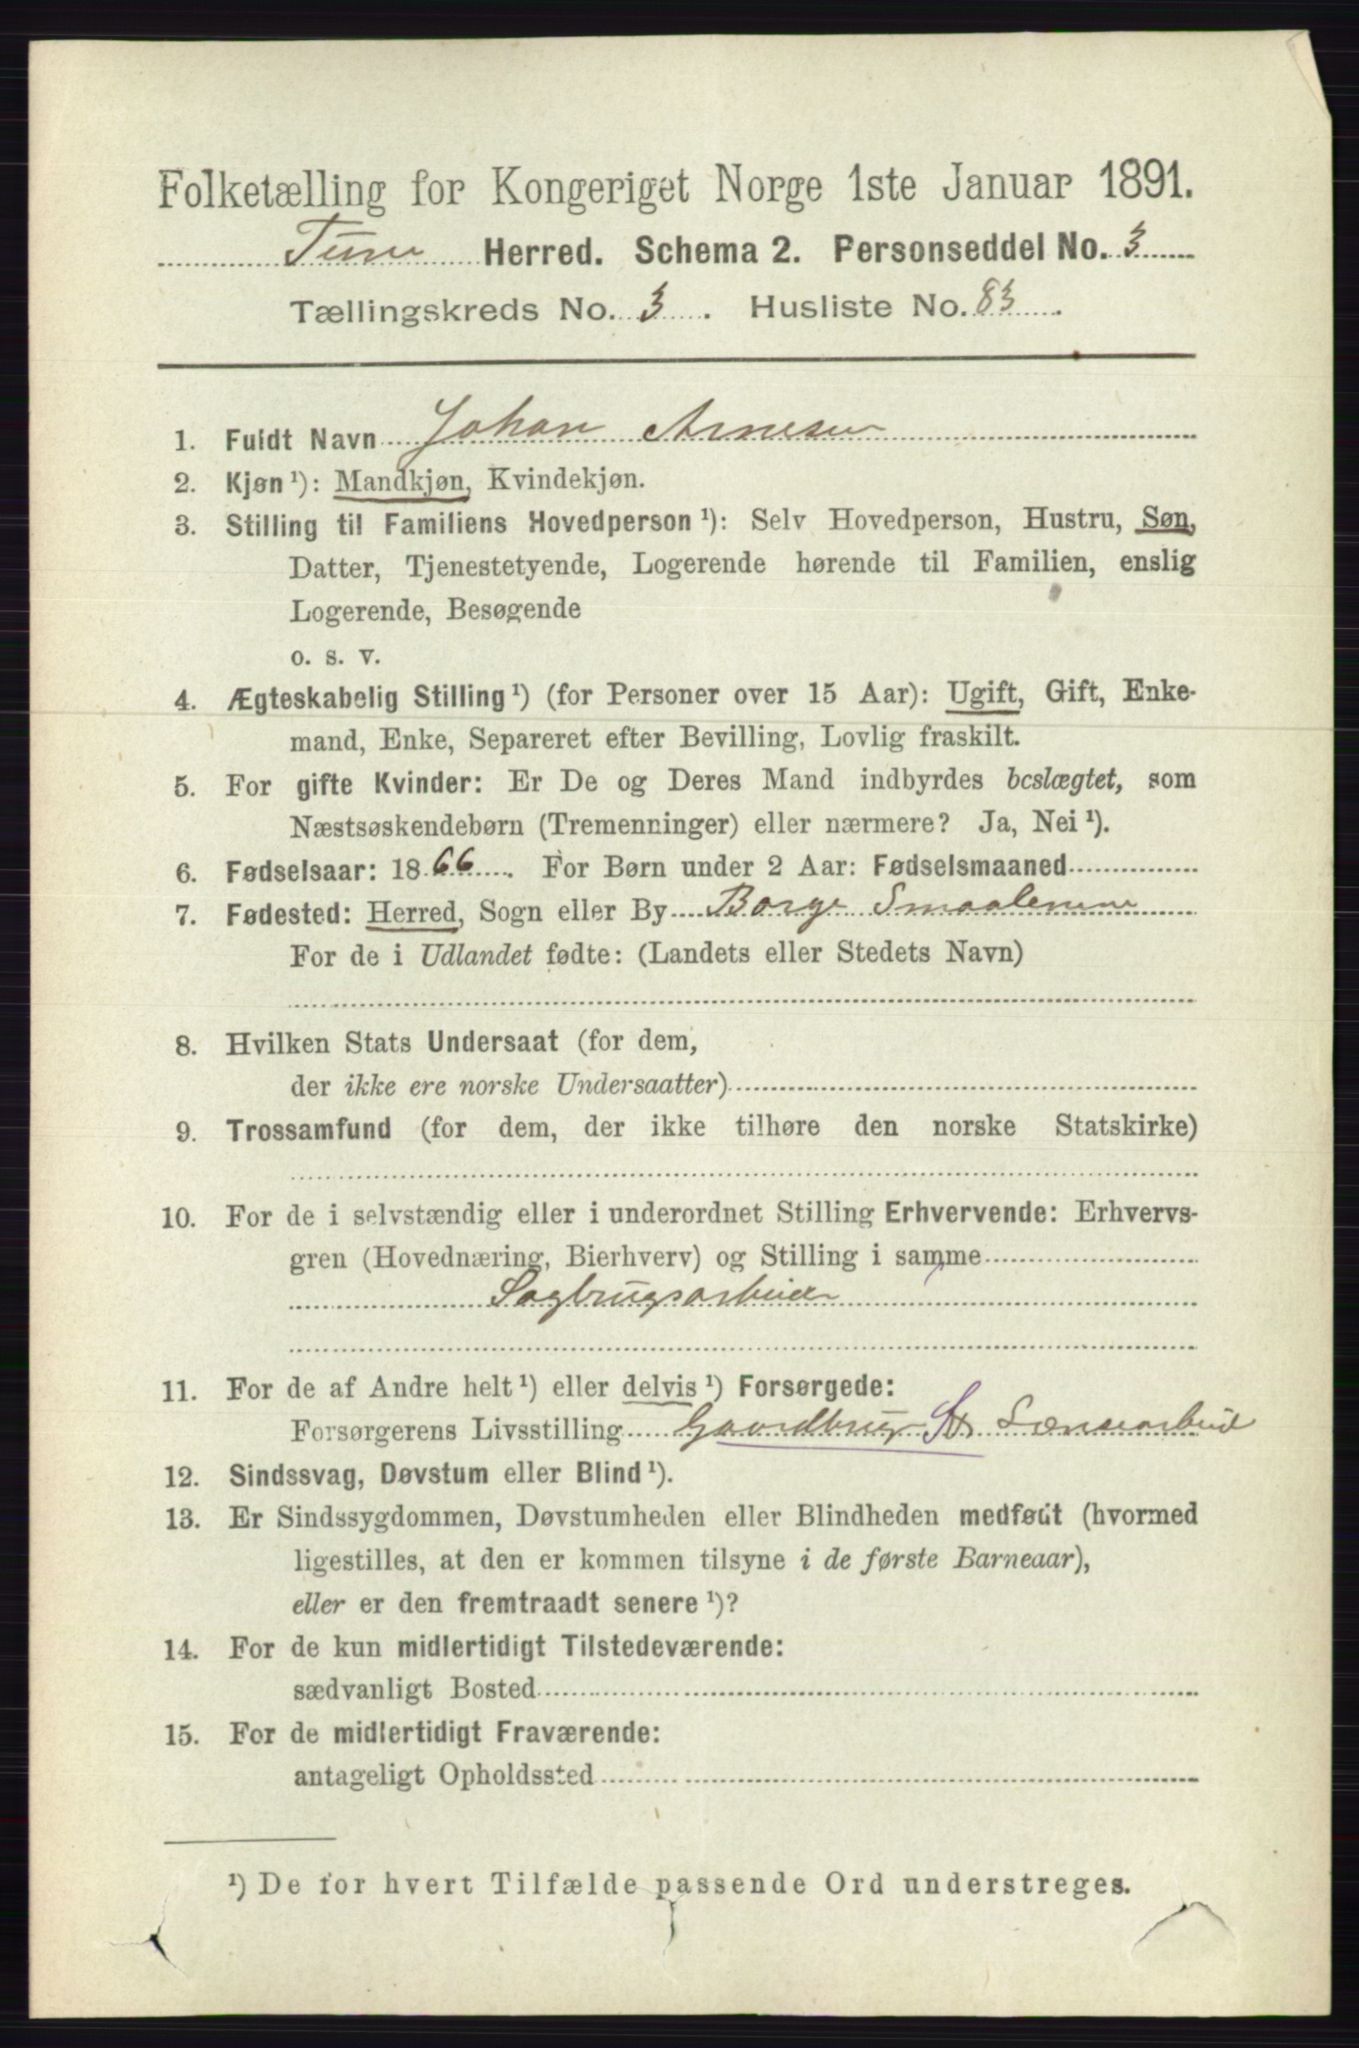 Folketælling for Kongeriget Norge 1ste Januar 1891.
Tune Herred. Schema 2. Personseddel No. 3
Tællingskreds No. 3. Husliste No. 83.
1. Fuldt Navn Johan Arnesen
2. Kjøn ¹): Mandkjøn, Kvindekjøn.
3. Stilling til Familiens Hovedperson ¹): Selv Hovedperson, Hustru, Søn,
Datter, Tjenestetyende, Logerende hørende til Familien, enslig
Logerende, Besøgende
o. s. v.
4. Ægteskabelig Stilling ¹) (for Personer over 15 Aar): Ugift, Gift, Enke-
mand, Enke, Separeret efter Bevilling, Lovlig fraskilt.
5. For gifte Kvinder: Er De og Deres Mand indbyrdes beslægtet, som
Næstsøskendebørn (Tremenninger) eller nærmere? Ja, Nei ¹).
6. Fødselsaar: 1866. For Børn under 2 Aar: Fødselsmaaned
7. Fødested: Herred, Sogn eller By Borge Smaalenene
For de i Udlandet fødte: (Landets eller Stedets Navn)
8. Hvilken Stats Undersaat (for dem,
der ikke ere norske Undersaatter)
9. Trossamfund (for dem, der ikke tilhøre den norske Statskirke)
10. For de i selvstændig eller i underordnet Stilling Erhvervende: Erhvervs-
gren (Hovednæring, Bierhverv) og Stilling i samme
Sagbrugsarbeider
11. For de af Andre helt ¹) eller delvis ¹) Forsørgede:
Forsørgerens Livsstilling Gaardbrug S Lænsearbeid
12. Sindssvag, Døvstum eller Blind ¹).
13. Er Sindssygdommen, Døvstumheden eller Blindheden medfødt (hvormed
ligestilles, at den er kommen tilsyne i de første Barneaar),
eller er den fremtraadt senere ¹)?
14. For de kun midlertidigt Tilstedeværende:
sædvanligt Bosted
15. For de midlertidigt Fraværende:
antageligt Opholdssted
¹) De for hvert Tilfælde passende Ord understreges.